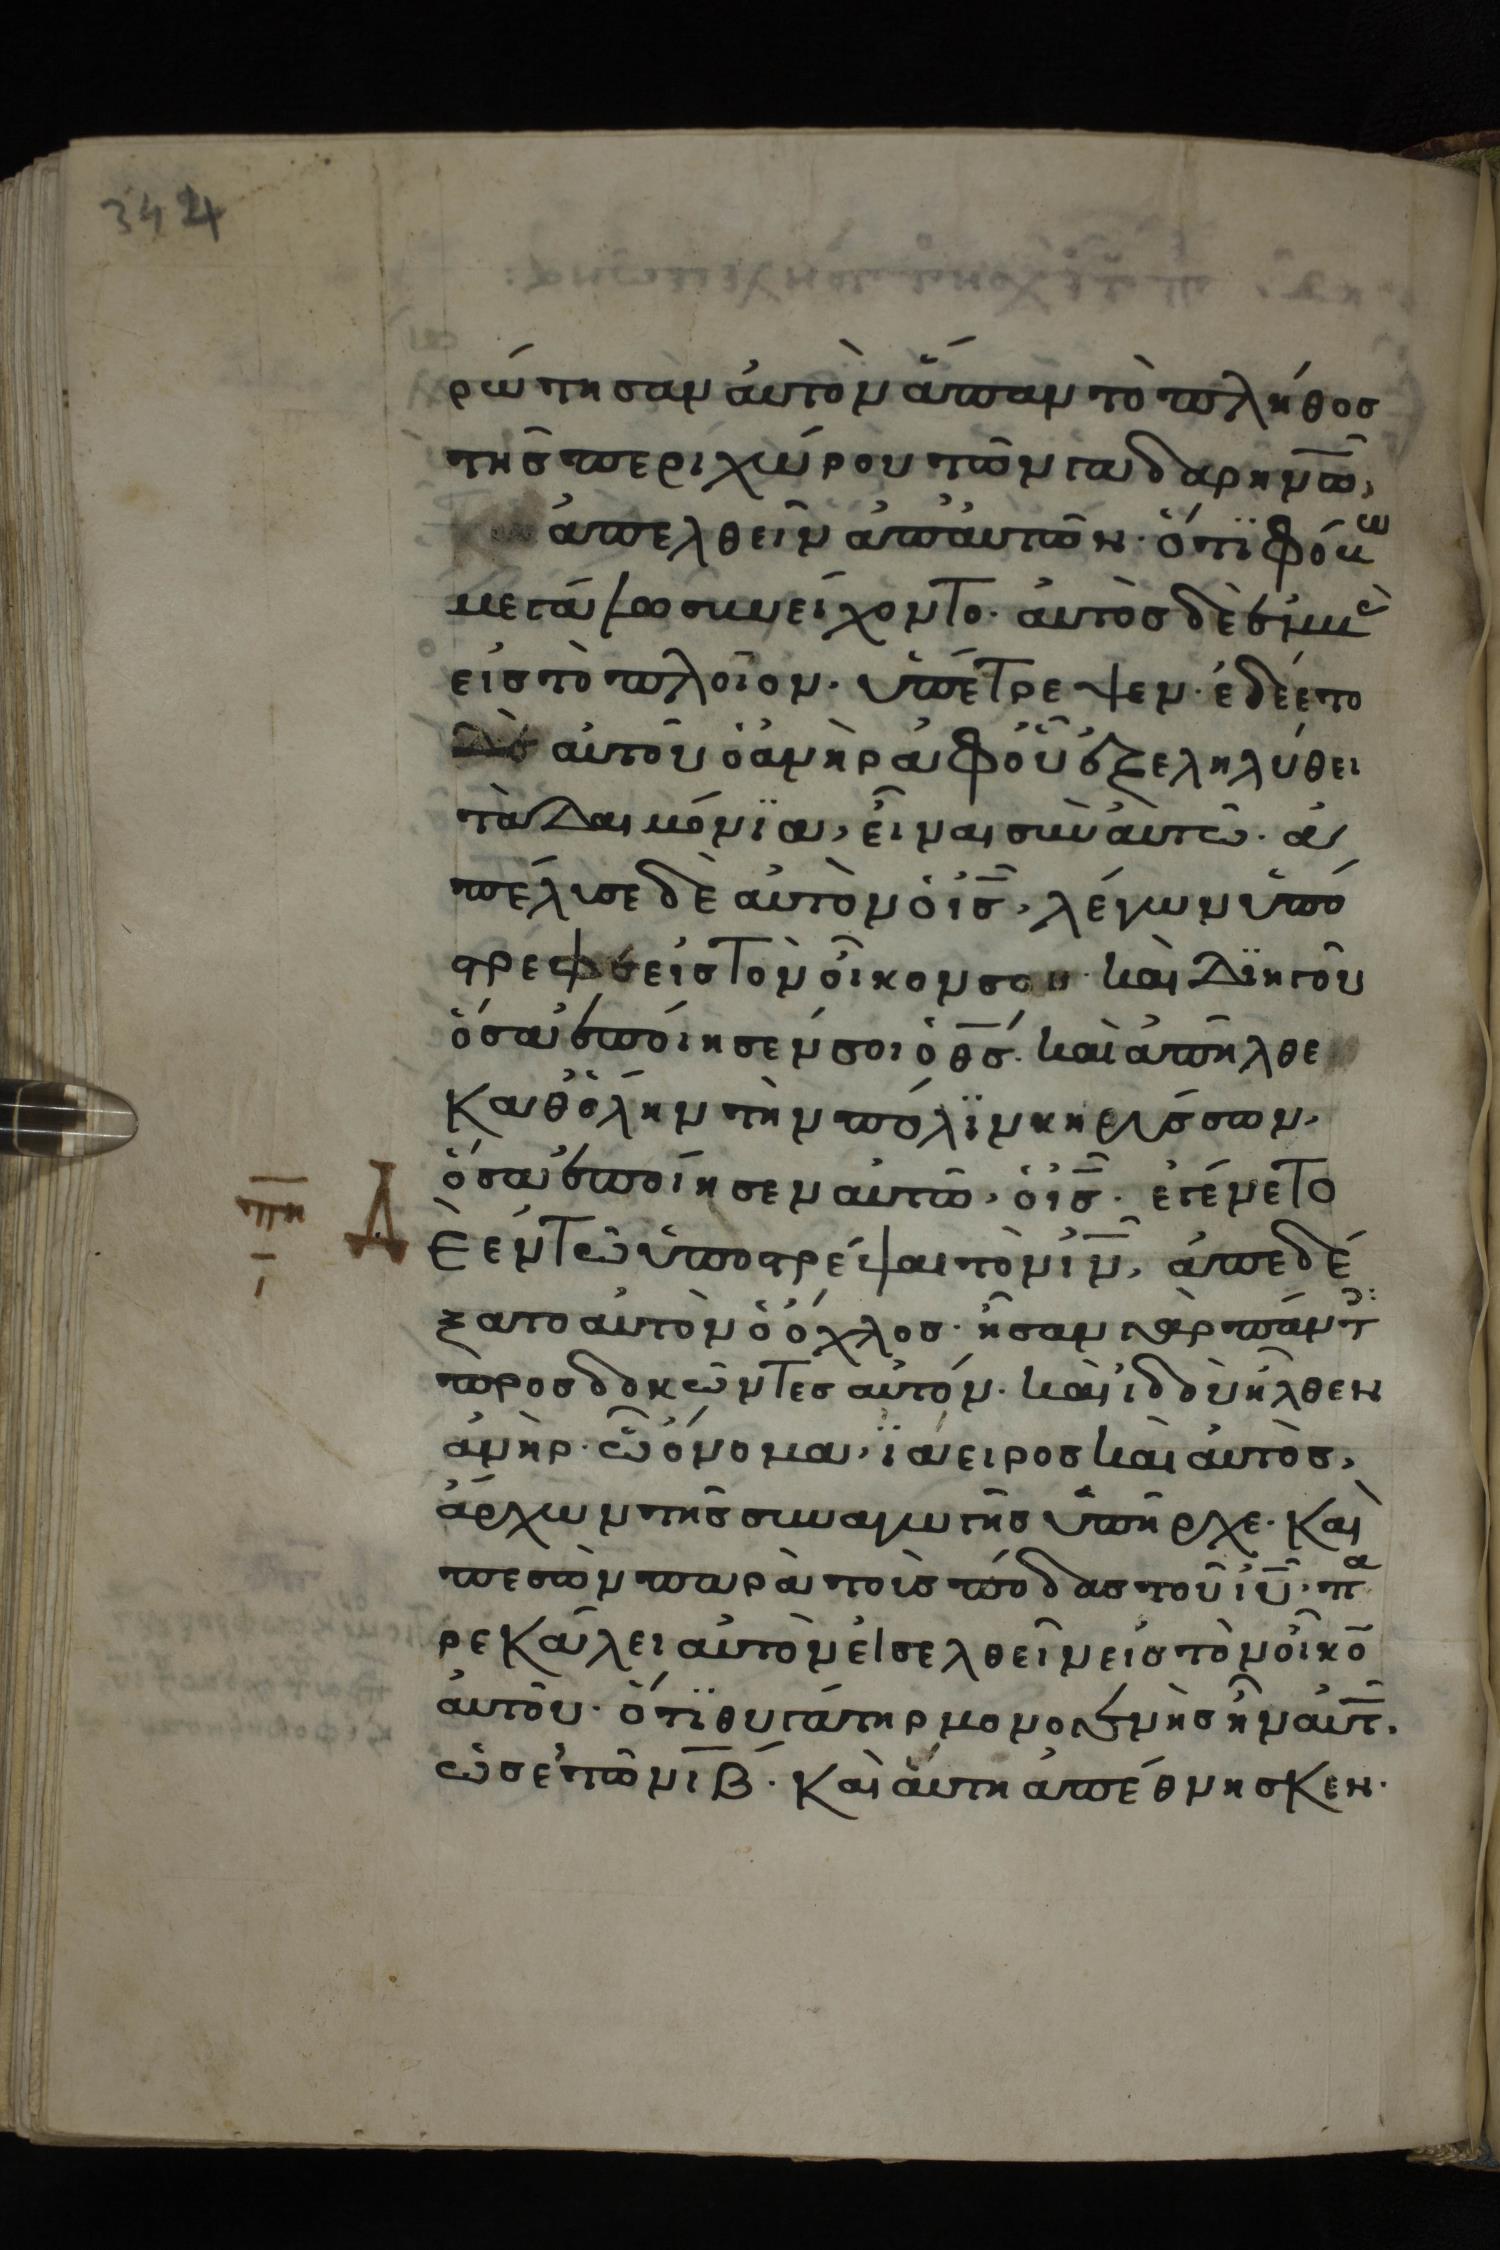 344
ρώτησαν αὐτὸν ἅπαν τὸ πλήθοσ
τῆσ περιχώρου τῶν γαδαρηνῶ,
ἀπελθεῖν ἀπ' αὐτῶν· ὅτϊ φόβω
μεγάλω συνείχοντο· ἀυτὸσ δὲ ἐμβὰσ
εἰσ τὸ πλοῖον· ὑπέστρεψεν· ἐδέετο
δὲ αὐτοῦ ὁ ἀνὴρ ἀφ' οὗ ἐξεληλύθει
τὰ δαιμόνϊα, εἶναι σὺν ἀυτῶ· ἀ
πέλυσε δὲ αὐτὸν ὁ ισ̅, λέγων ὑπό
στρεφε εἰσ τὸν οἶκον σου· καὶ διηγοῦ
ὅσα ἐποίησέν σοι ὁ θσ̅· καὶ ἀπῆλθε
καθ' ὅλην τὴν πόλϊν κηρύσσων,
ὅσα ἐποίησεν αὐτῶ, ὁ ισ̅· ἐγένετο
πη̅ ι̅
δὲ ἐν τῶ ὑποστρέψαι τὸν ιν̅, ἀπεδέ
ξατο αὐτὸν ὁ ὄχλοσ· ἦσαν γὰρ πάντ
προσδοκῶντεσ αὐτόν· καὶ ἰδοὺ ἦλθεν
ἀνὴρ· ὧ ὄνομα, ϊάειροσ καὶ αὐτὸσ,
ἄρχων τῆσ συναγωγῆσ ὑπῆρχε· καὶ
πεσὼν παρὰ τοὺσ πόδασ τοῦ ιυ̅· πα
ρεκάλει αὐτὸν εἰσελθεῖν εἰσ τὸν οἶκο̅
αὐτοῦ· ὅτϊ θυγάτηρ μονογενὴσ ἦν αὐτ,
ὡσ ἐτῶν ιβ̅· καὶ ἀύτη ἀπέθνησκεν·